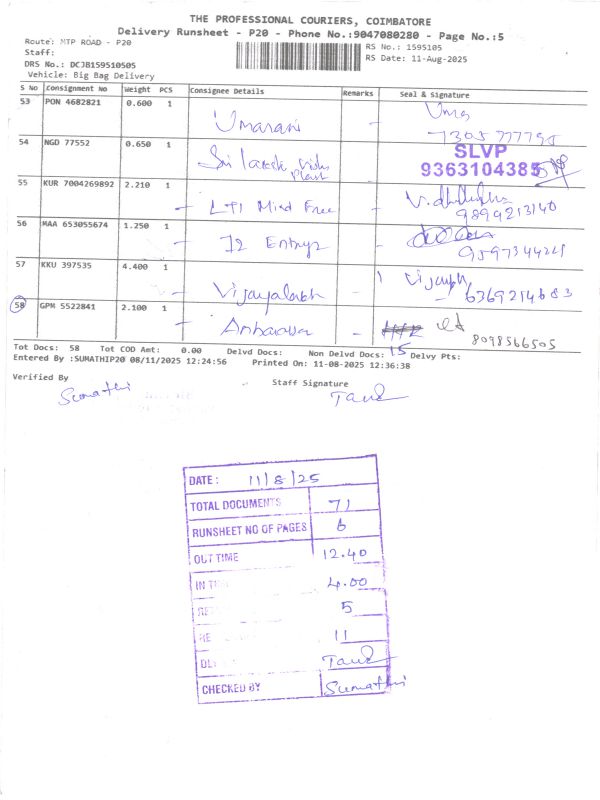 THE PROFESSIONAL COURIERS, COIMBATORE
Delivery Runsheet - P20 - Phone No.:9047080280 - Page No.:5
Route: MTP ROAD - P20
RS No.: 1595105
Staff:
RS Date: 11-Aug-2025
DRS No.: DCJB159510505
Vehicle: Big Bag Delivery
S No Consignment No Weight PCS Consignee Details Remarks Seal & Signature
53 PON 4682821 0.600 1 Umarani - Uma
7305777795
54 NGD 77552 0.650 1 Sri Vishu Plast SLVP
9363104385
55 KUR 7004269892 2.210 1 - LTI Mind Free - V.
9899213140
56 MAA 653055674 1.250 1 - J2 Entryz -
9597344221
57 KKU 397535 4.400 1 - Vijayalakh Vijayalh
6369214683
58 GPM 5522841 2.100 1 - -
8098566505
Tot Docs: 58 Tot COD Amt: 0.00 Delvd Docs: Non Delvd Docs: 15 Delvy Pts:
Entered By :SUMATHIP20 08/11/2025 12:24:56 Printed On: 11-08-2025 12:36:38
Verified By Staff Signature
Sumathi
DATE : 11/8/25
TOTAL DOCUMENTS 71
RUNSHEET NO OF PAGES 6
OUT TIME 12.40
IN 4.00
5
RE 11
CHECKED BY Sumathi